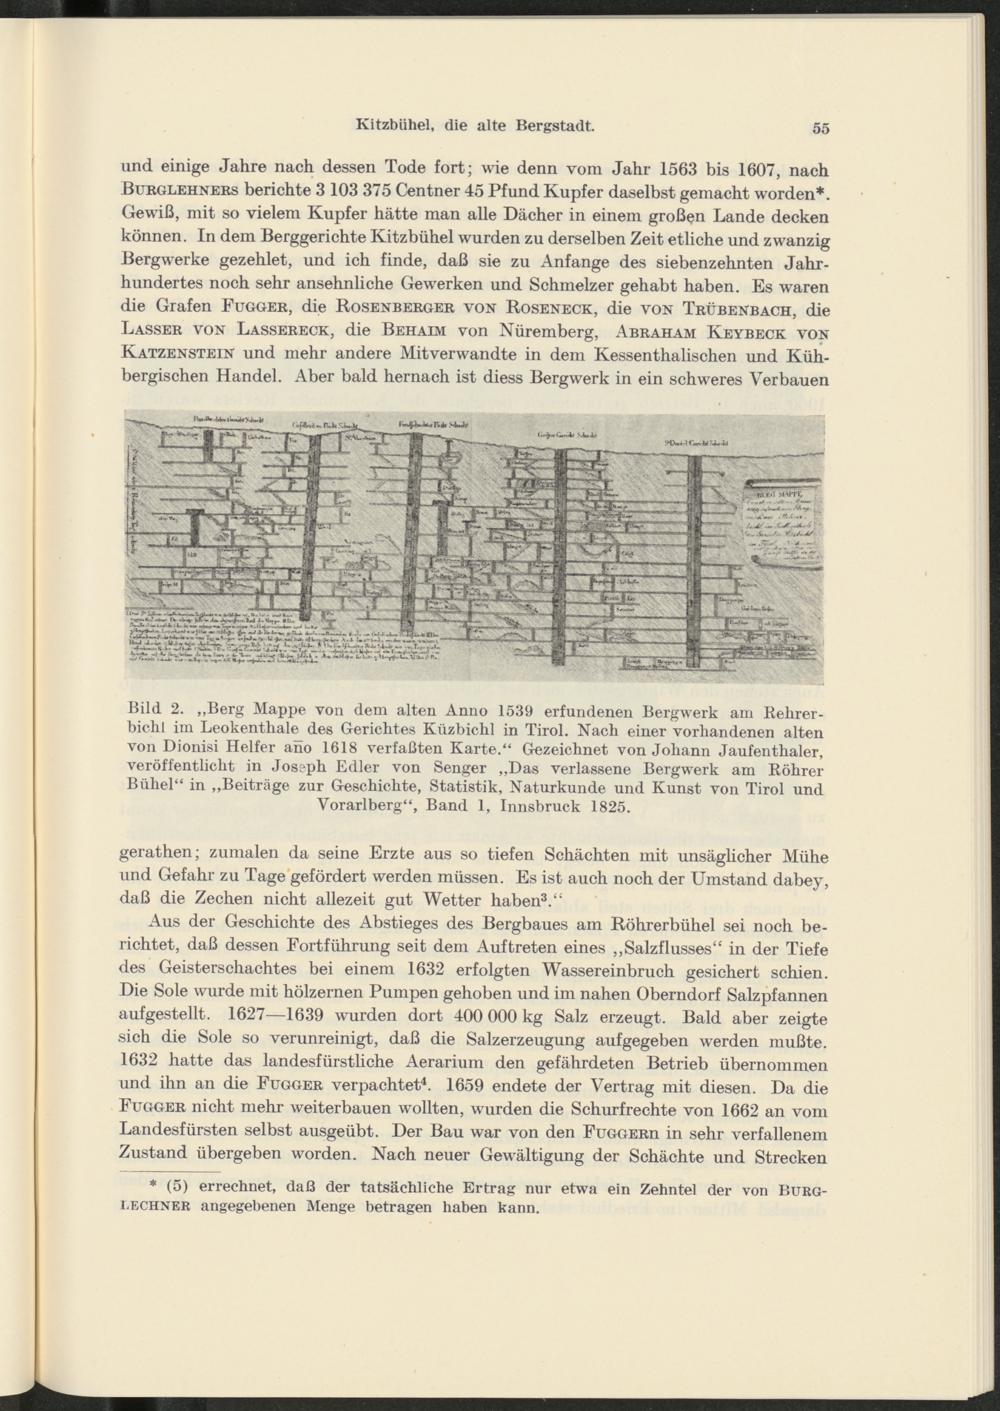 Kitzbühel, die alte Bergstadt. 55
und einige Jahre nach dessen Tode fort; wie denn vom Jahr 1563 bis 1607, nach
BURGLEHNERS berichte 3 103 375 Centner 45 Pfund Kupfer daselbst gemacht worden*.
Gewiß, mit so vielem Kupfer hätte man alle Dächer in einem großen Lande decken
können. In dem Berggerichte Kitzbühel wurden zu derselben Zeit etliche und zwanzig
Bergwerke gezehlet, und ich finde, daß sie zu Anfange des siebenzehnten Jahr-
hundertes noch sehr ansehnliche Gewerken und Schmelzer gehabt haben. Es waren
die Grafen FUGGER, die ROSENBERGER VON ROSENECK, die VON TRÜBENBACH, die
LASSER VON LASSERECK, die BEHAIM von Nüremberg, ABRAHAM KEYBECK VON
KATZENSTEIN und mehr andere Mitverwandte in dem Kessenthalischen und Küh-
bergischen Handel. Aber bald hernach ist diess Bergwerk in ein schweres Verbauen
BERG MAPPE
Bild 2. „Berg Mappe von dem alten Anno 1539 erfundenen Bergwerk am Rehrer-
bichl im Leokenthale des Gerichtes Küzbichl in Tirol. Nach einer vorhandenen alten
von Dionisi Helfer año 1618 verfaßten Karte.“ Gezeichnet von Johann Jaufenthaler,
veröffentlicht in Joseph Edler von Senger „Das verlassene Bergwerk am Röhrer
Bühel“ in „Beiträge zur Geschichte, Statistik, Naturkunde und Kunst von Tirol und
Vorarlberg“, Band 1, Innsbruck 1825.
gerathen; zumalen da seine Erzte aus so tiefen Schächten mit unsäglicher Mühe
und Gefahr zu Tage gefördert werden müssen. Es ist auch noch der Umstand dabey,
daß die Zechen nicht allezeit gut Wetter haben³.“
Aus der Geschichte des Abstieges des Bergbaues am Röhrerbühel sei noch be-
richtet, daß dessen Fortführung seit dem Auftreten eines „Salzflusses“ in der Tiefe
des Geisterschachtes bei einem 1632 erfolgten Wassereinbruch gesichert schien.
Die Sole wurde mit hölzernen Pumpen gehoben und im nahen Oberndorf Salzpfannen
aufgestellt. 1627—1639 wurden dort 400 000 kg Salz erzeugt. Bald aber zeigte
sich die Sole so verunreinigt, daß die Salzerzeugung aufgegeben werden mußte.
1632 hatte das landesfürstliche Aerarium den gefährdeten Betrieb übernommen
und ihn an die FUGGER verpachtet⁴. 1659 endete der Vertrag mit diesen. Da die
FUGGER nicht mehr weiterbauen wollten, wurden die Schurfrechte von 1662 an vom
Landesfürsten selbst ausgeübt. Der Bau war von den FUGGERN in sehr verfallenem
Zustand übergeben worden. Nach neuer Gewältigung der Schächte und Strecken
* (5) errechnet, daß der tatsächliche Ertrag nur etwa ein Zehntel der von BURG-
LECHNER angegebenen Menge betragen haben kann.